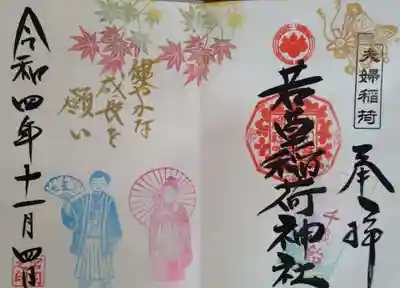 夫婦稲荷
奉拝
若草稲荷神社
健やかな
成長を
願い
令和四年十一月四日